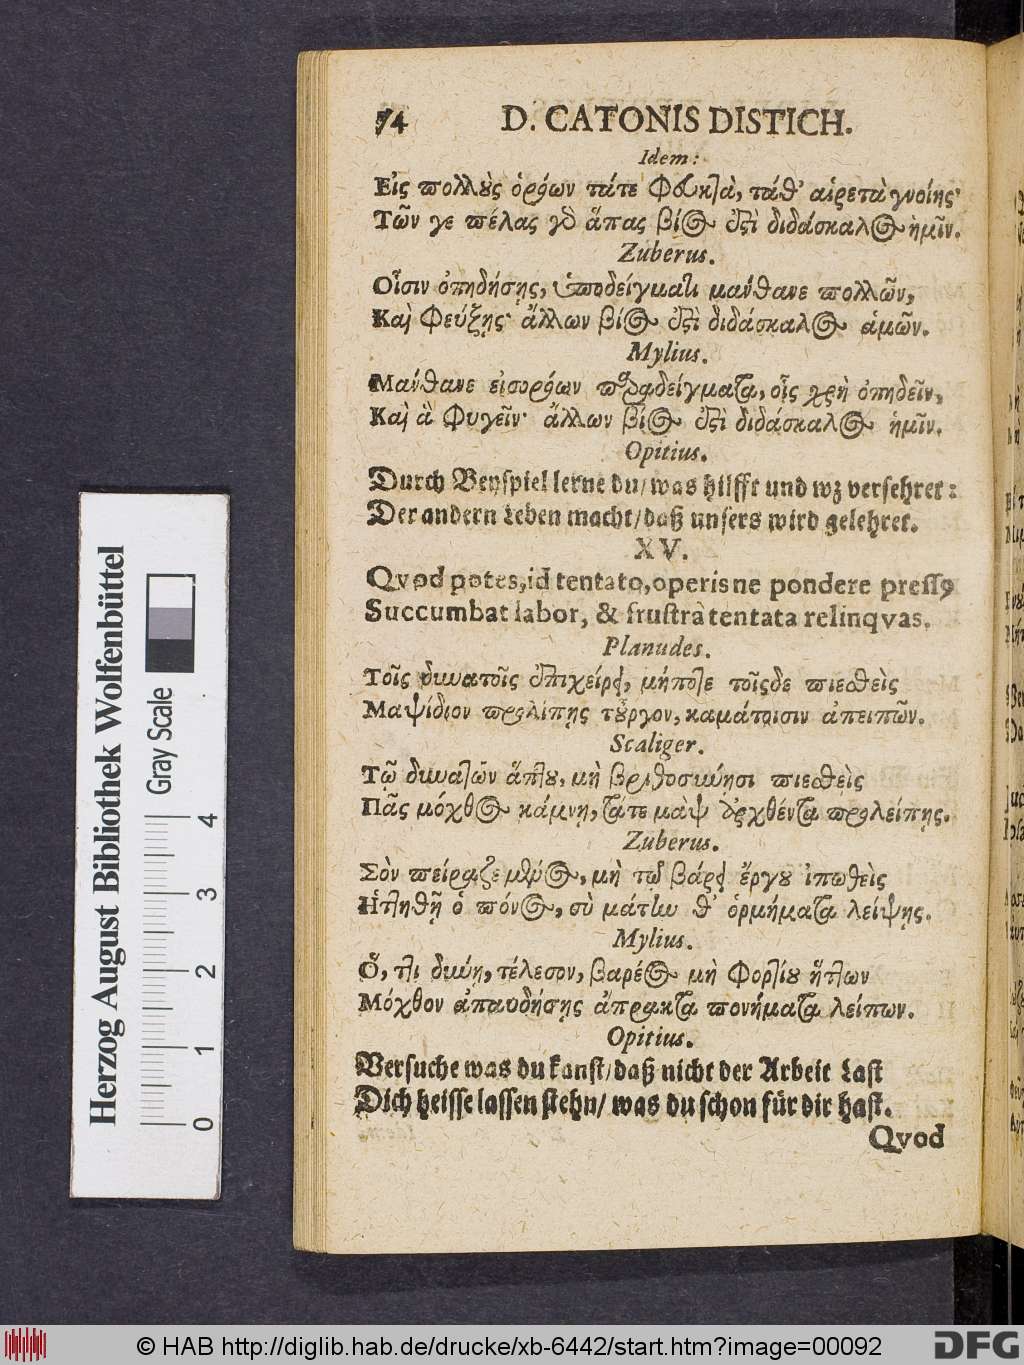 74 D. CATONIS DISTICH.
Idem:
Εἰς πολλοὺς ὁρόων πάτε φδκτὰ, τάθ’ αἱρετὰ γνοίης·
Τῶν γε πέλας γδ ἅπας βί(Θ) ἐςὶ διδάσκαλ(Θ) ἡμῖν.
Zuberus.
Οἷσιν ὀπηδήσῃς, ὑποδείγματι μαύθανε πολλῶν,
Καὶ φεύξῃς· ἄλλων βίΘ ἐςὶ διδάσκαλΘ ἁμῶν.
Mylius.
Μαύθανε εἰσορόων παραδείγματα, οἷς χρὴ ὀπηδεῖν,
Καὶ ἃ φυγεῖν· ἄλλων βίΘ ἐςὶ διδάσκαλΘ ἡμῖν.
Opitius.
Durch Beyspiel lerne du/ was hilfft und wz versehret:
Der andern Leben macht/ daß unsers wird gelehret.
XV.
Qvod potes, id tentato, operis ne pondere pressꝰ
Succumbat labor, & frustrà tentata relinqvas.
Planudes.
Τοῖς δυνατοῖς ἐπιχείρει, μήποτε τοῖςδε πιεσθεὶς
Μαψίδιον προλίπῃς τοὖργον, καμάτοισιν ἀπειπῶν.
Scaliger.
Τῷ δυνατῶν ἅπτου, μὴ βριθοσύνῃσι πιεσθεὶς
Πᾶς μόχθΘ κάμνῃ, τάτε μαψ ἀρχθέντα προλείπῃς.
Zuberus.
Σὸν πείραζε μένΘ, μὴ τῷ βάρει ἔργου ἰπωθεὶς
Ἡττηθῇ ὁ πόνΘ, σὺ μάτην θ’ ὁρμήματα λείψῃς.
Mylius.
Ὅ, τι δύνῃ, τέλεσον, βαρέΘ μὴ φορτίου ἥττων
Μόχθον ἀπαυδήσῃς ἀπρακτα πονήματα λείπων.
Opitius.
Versuche was du kanst/ daß nicht der Arbeit Last
Dich heisse lassen stehn/ was du schon für dir hast.
Qvod
Herzog August Bibliothek Wolfenbüttel
Gray Scale
0 1 2 3 4
© HAB http://diglib.hab.de/drucke/xb-6442/start.htm?image=00092
DFG